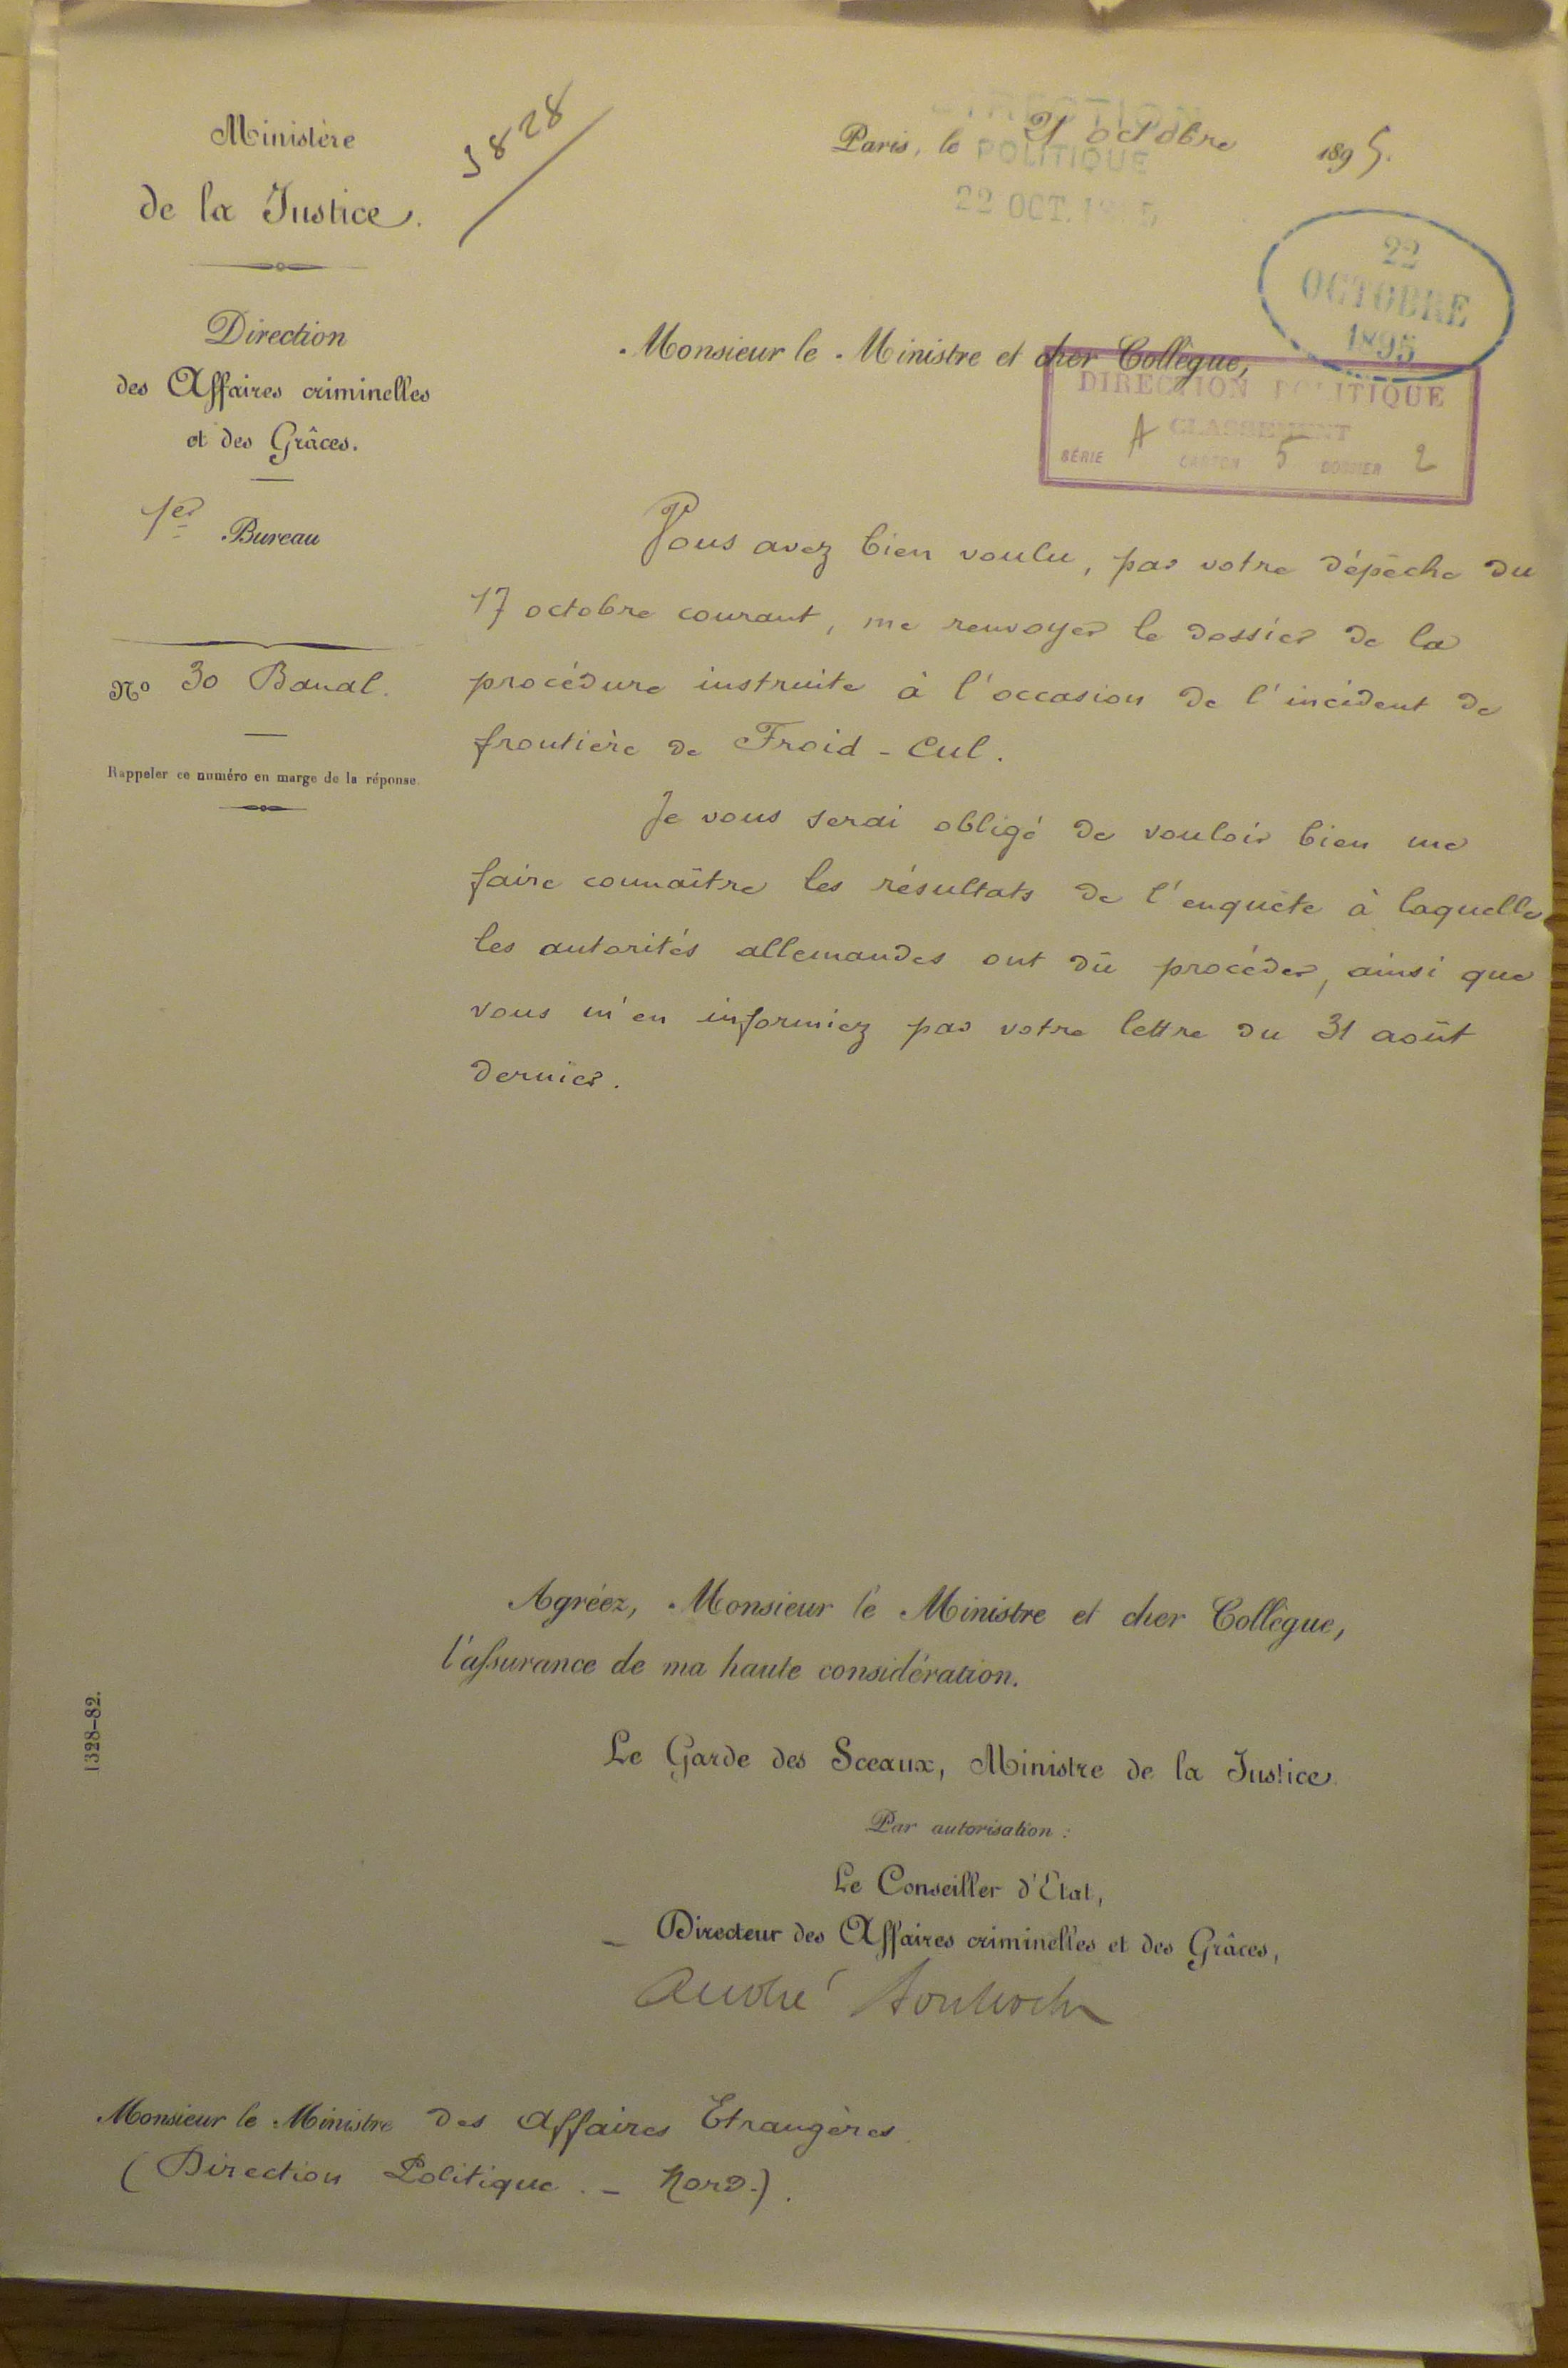 Ministère
de la Justice.
Direction
des Affaires criminelles
et des Grâces.
1er Bureau
No 30 Banal.
Rappeler ce numéro en marge de la réponse.
3828
DIRECTION
POLITIQUE
22 OCT. 1895
Paris, le 21 octobre 1895.
22
OCTOBRE
1895
Monsieur le Ministre et cher Collègue,
DIRECTION POLITIQUE
CLASSEMENT
SÉRIE A CARTON 5 DOSSIER 2
Vous avez bien voulu, par votre dépêche du
17 octobre courant, me renvoyer le dossier de la
procédure instruite à l'occasion de l'incident de
frontière de Froid-Cul.
Je vous serai obligé de vouloir bien me
faire connaître les résultats de l'enquête à laquelle
les autorités allemandes ont dû procéder, ainsi que
vous m'en informiez par votre lettre du 31 août
dernier.
Agréez, Monsieur le Ministre et cher Collègue,
l'assurance de ma haute considération.
Le Garde des Sceaux, Ministre de la Justice.
Par autorisation :
Le Conseiller d'État,
Directeur des Affaires criminelles et des Grâces,
André Boulloche
1328-82.
Monsieur le Ministre des Affaires Etrangères
(Direction Politique. - Nord.).